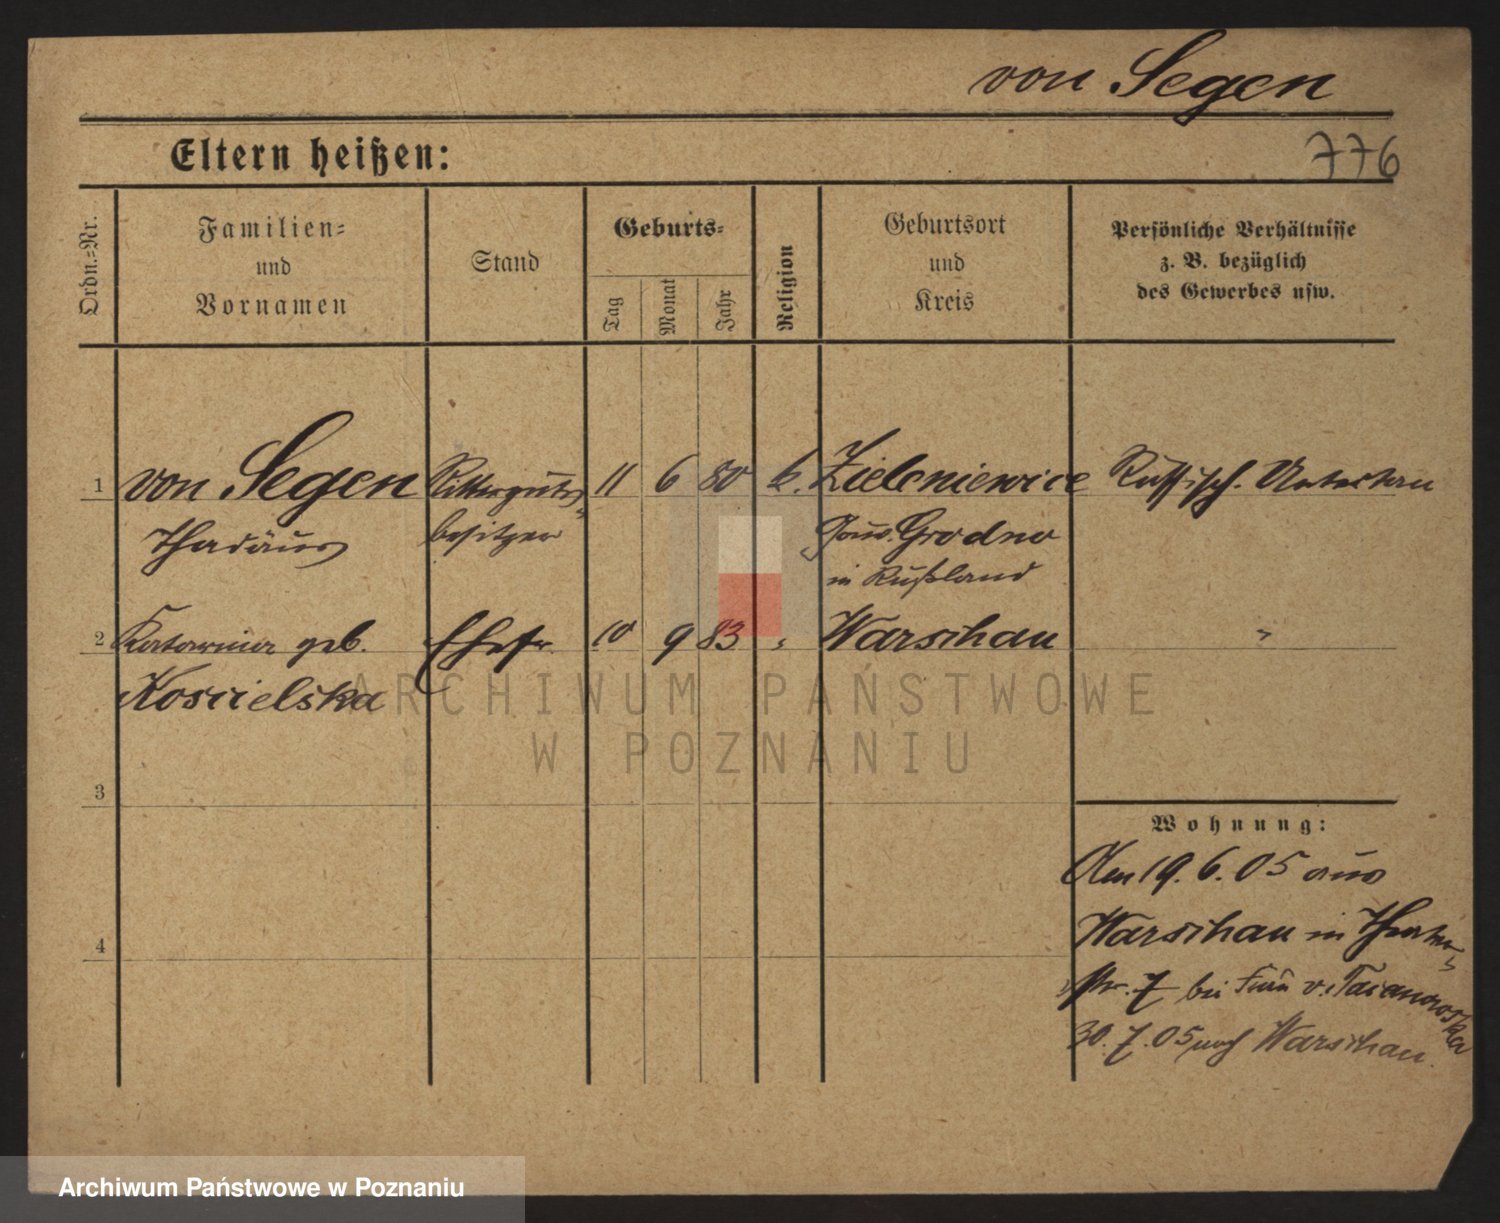 von Segen
Eltern heißen:
776
Ordn.-Nr.
Familien-
und
Vornamen
Stand
Geburts-
Tag
Monat
Jahr
Religion
Geburtsort
und
Kreis
Persönliche Verhältnisse
z. B. bezüglich
des Gewerbes usw.
1 von Segen Ritterguts- 11 6 80 k. Zieleniewice Russisch. Untertan
Thadäus besitzer Gouv. Grodno
in Rußland
2 Katarina geb. Ehefr. 10 9 83 " Warschau "
Koscielska
ARCHIWUM PAŃSTWOWE
W POZNANIU
3
Wohnung:
Am 19.6.05 aus
4
Warschau in Theater-
str. 7 bei Frau v.
30.7.05 nach Warschau.
Archiwum Państwowe w Poznaniu